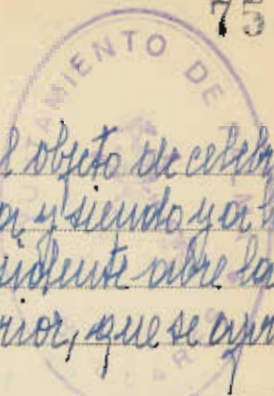 75
AMIENTO DE
l objeto de celebr
a y siendo ya l
sidente abre la
rior, que se apr